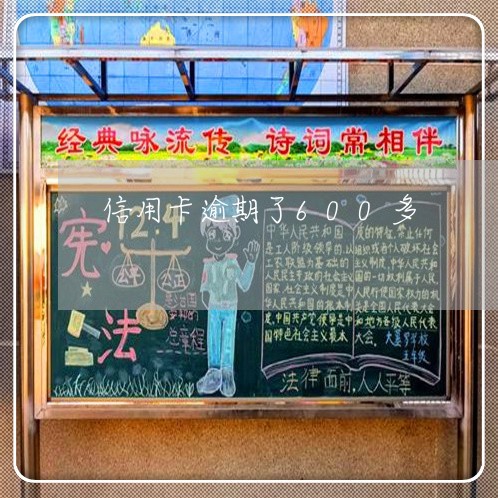 经典咏流传 诗词常相伴
信用卡逾期了600多
宪法
12.4
公平 公正
总章程
中华人民共和国
是工人阶级领导的,以
工农联盟为基础的
人民民主专政的社会主义
国家,社会主义制度是中
华人民共和国的根本制
度,中国共产党领导是中
国特色社会主义最本
质的特征,禁止任何
组织或者个人破坏社会
主义制度,中华人民共和
国的一切权利属于人民,
人民行使国家权力的机
关是全国人民代表大会
和地方各级人民代表
大会。
五年级
法律面前,人人平等